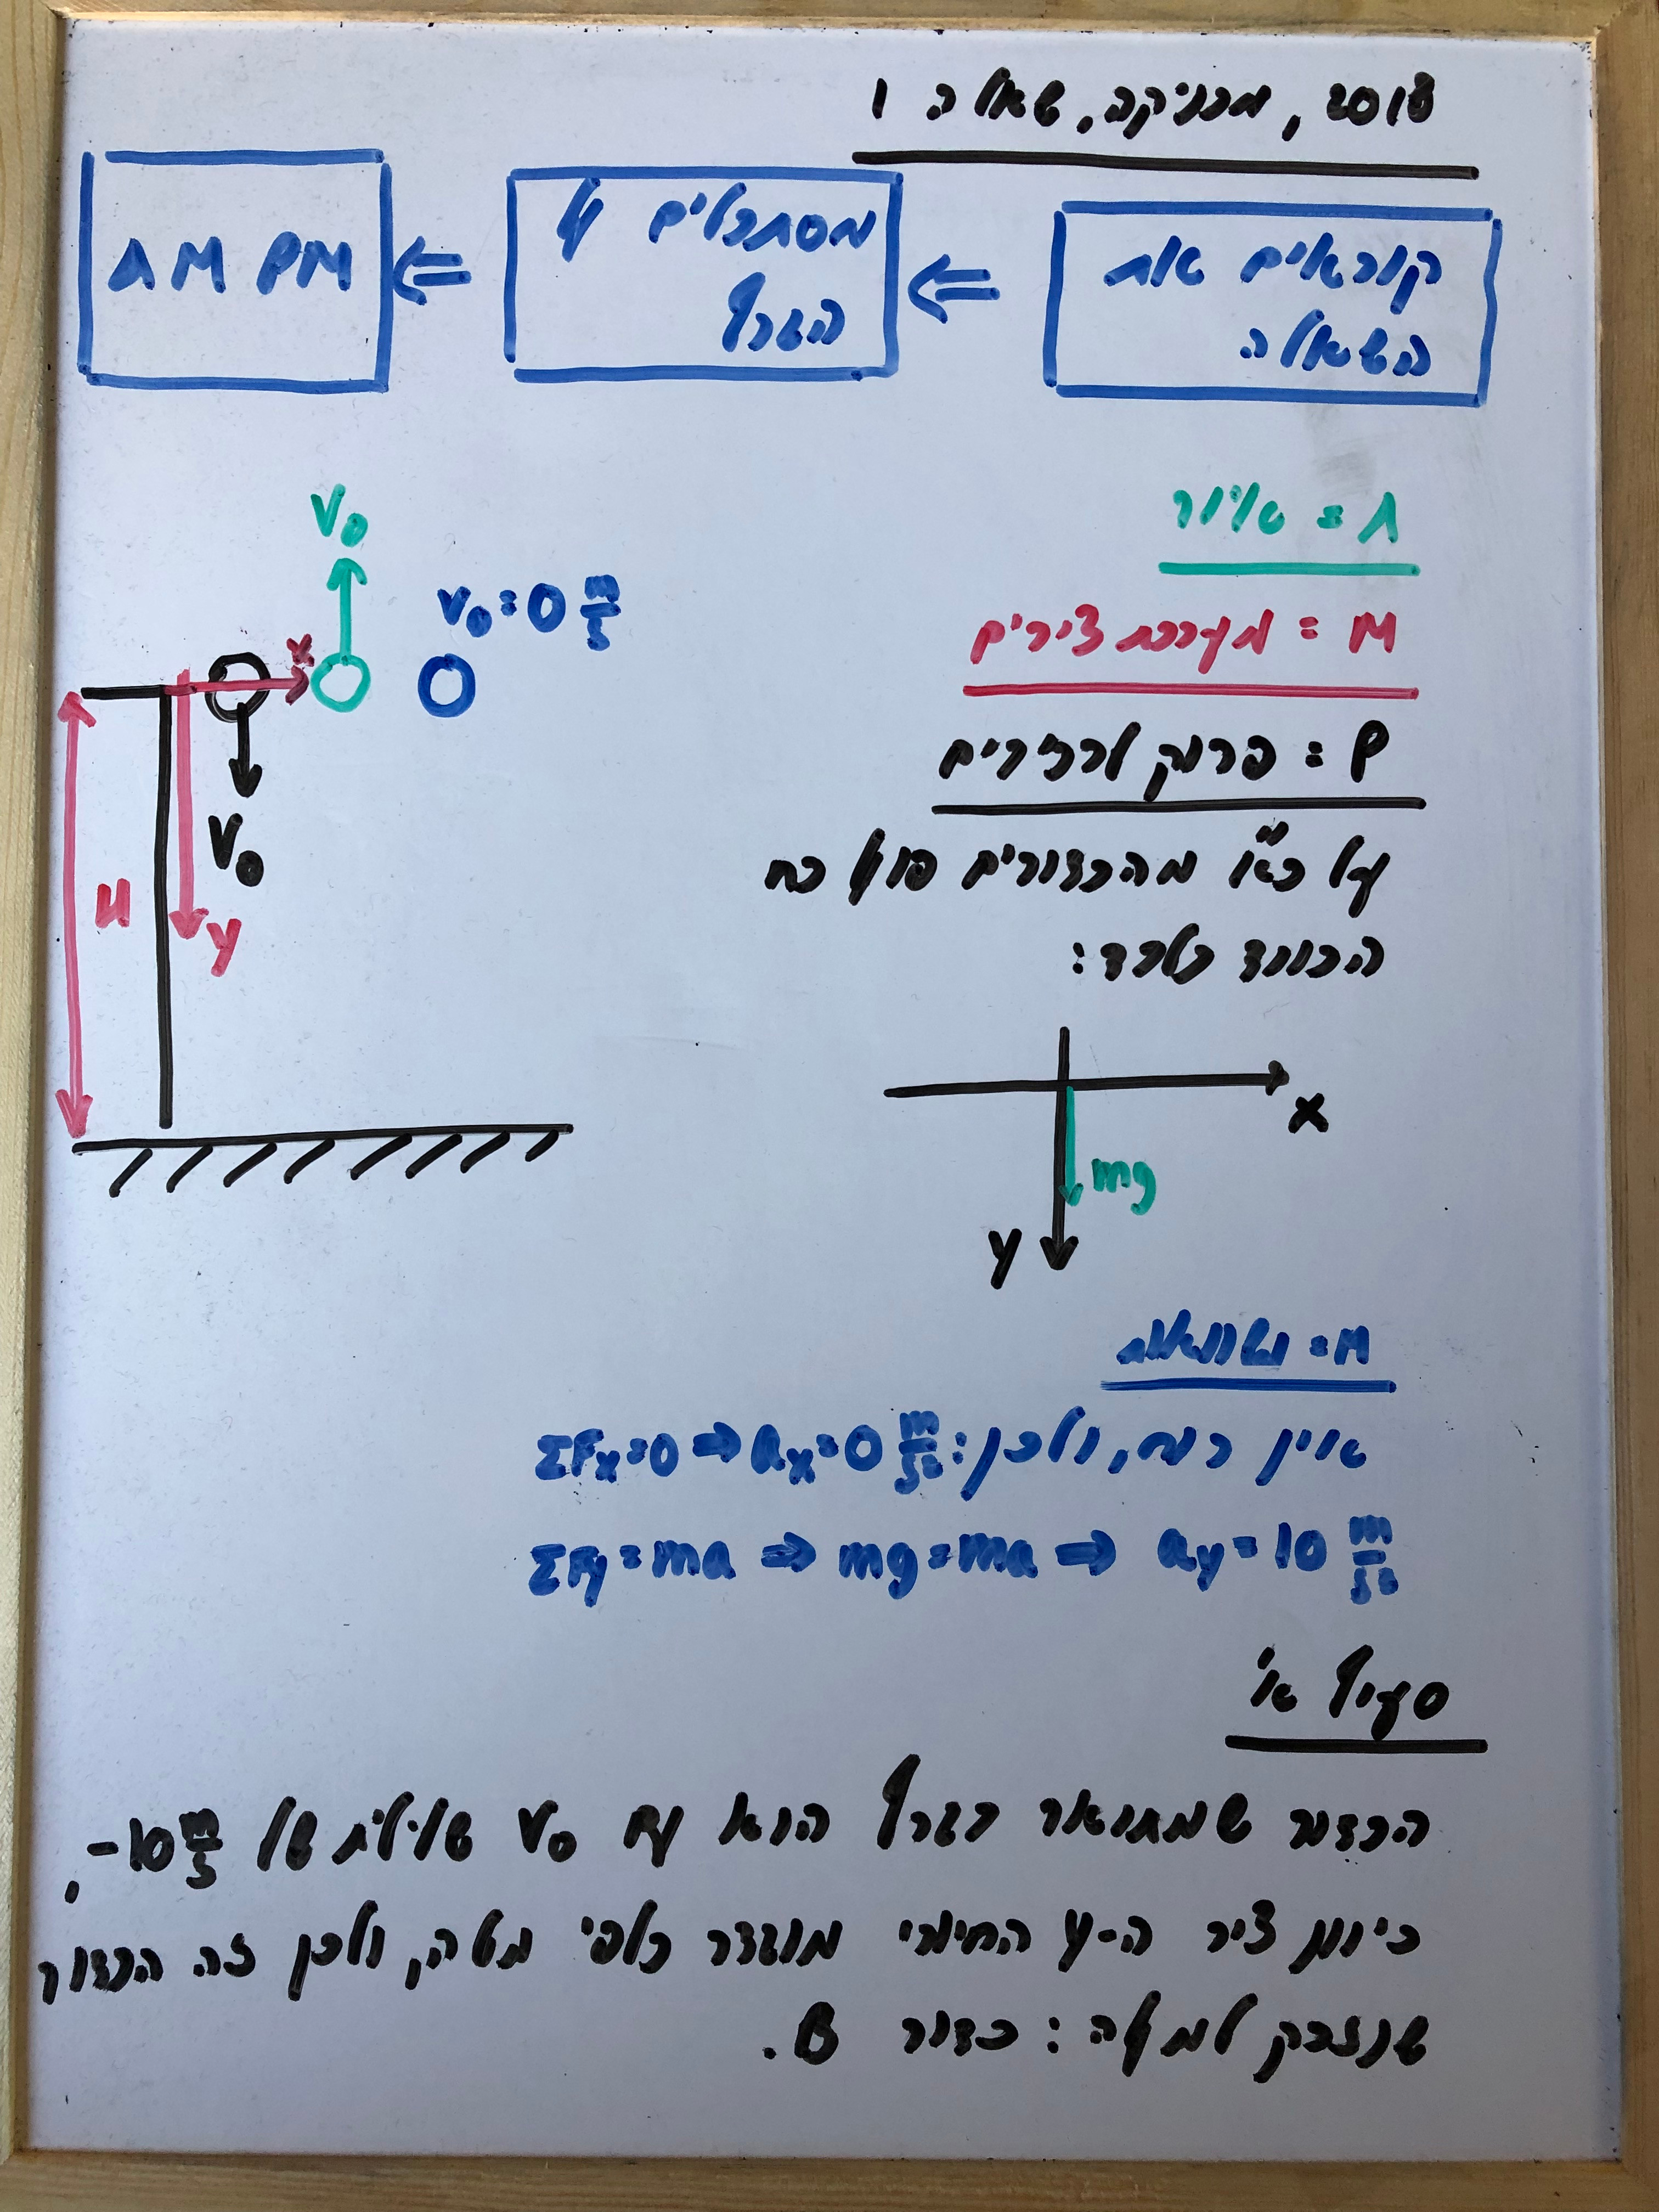 2018, מכניקה, שאלה 1
קוראים את
השאלה
⇐
מסתכלים על
הגרף
⇐
AM PM
A = איור
M = מערכת צירים
P = פרוק לרכיבים
על כ"א מהכדורים פועל כח
הכובד בלבד:
V₀
V₀ = 0 m/s
x
V₀
H
y
x
mg
y
M = משוואות
אין רוח, ולכן: ΣFx=0 ⇒ ax=0 m/s²
ΣFy=ma ⇒ mg=ma ⇒ ay=10 m/s²
סעיף א'
הכדור שמתואר בגרף הוא עם V₀ שלילית של -10 m/s,
כיוון ציר ה-y החיובי מוגדר כלפי מטה, ולכן זה הכדור
שנזרק למעלה: כדור B.